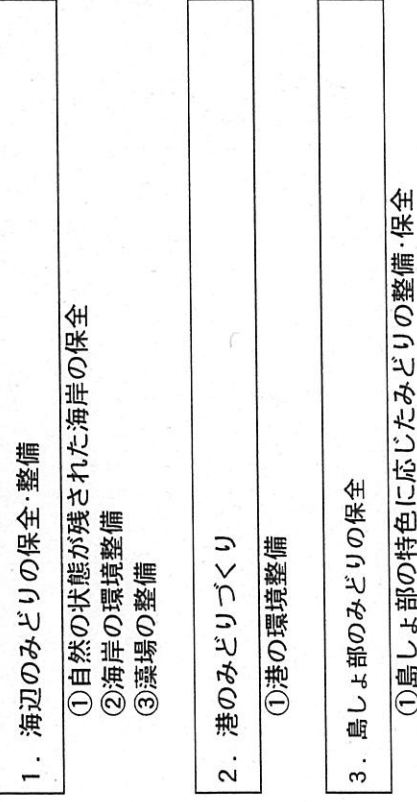 1. 海辺のみどりの保全・整備
①自然の状態が残された海岸の保全
②海岸の環境整備
③藻場の整備
2. 港のみどりづくり
①港の環境整備
3. 島しょ部のみどりの保全
①島しょ部の特色に応じたみどりの整備・保全